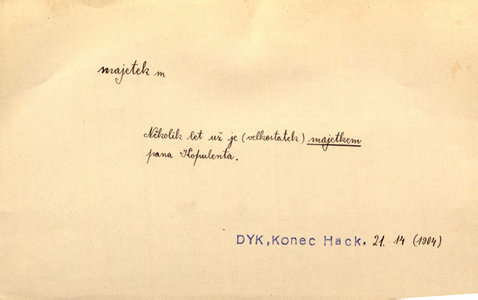 majetek m
Několik let už je (velkostatek) majetkem
pana Kopulenta.
DYK, Konec Hack. 21. 14 (1904)